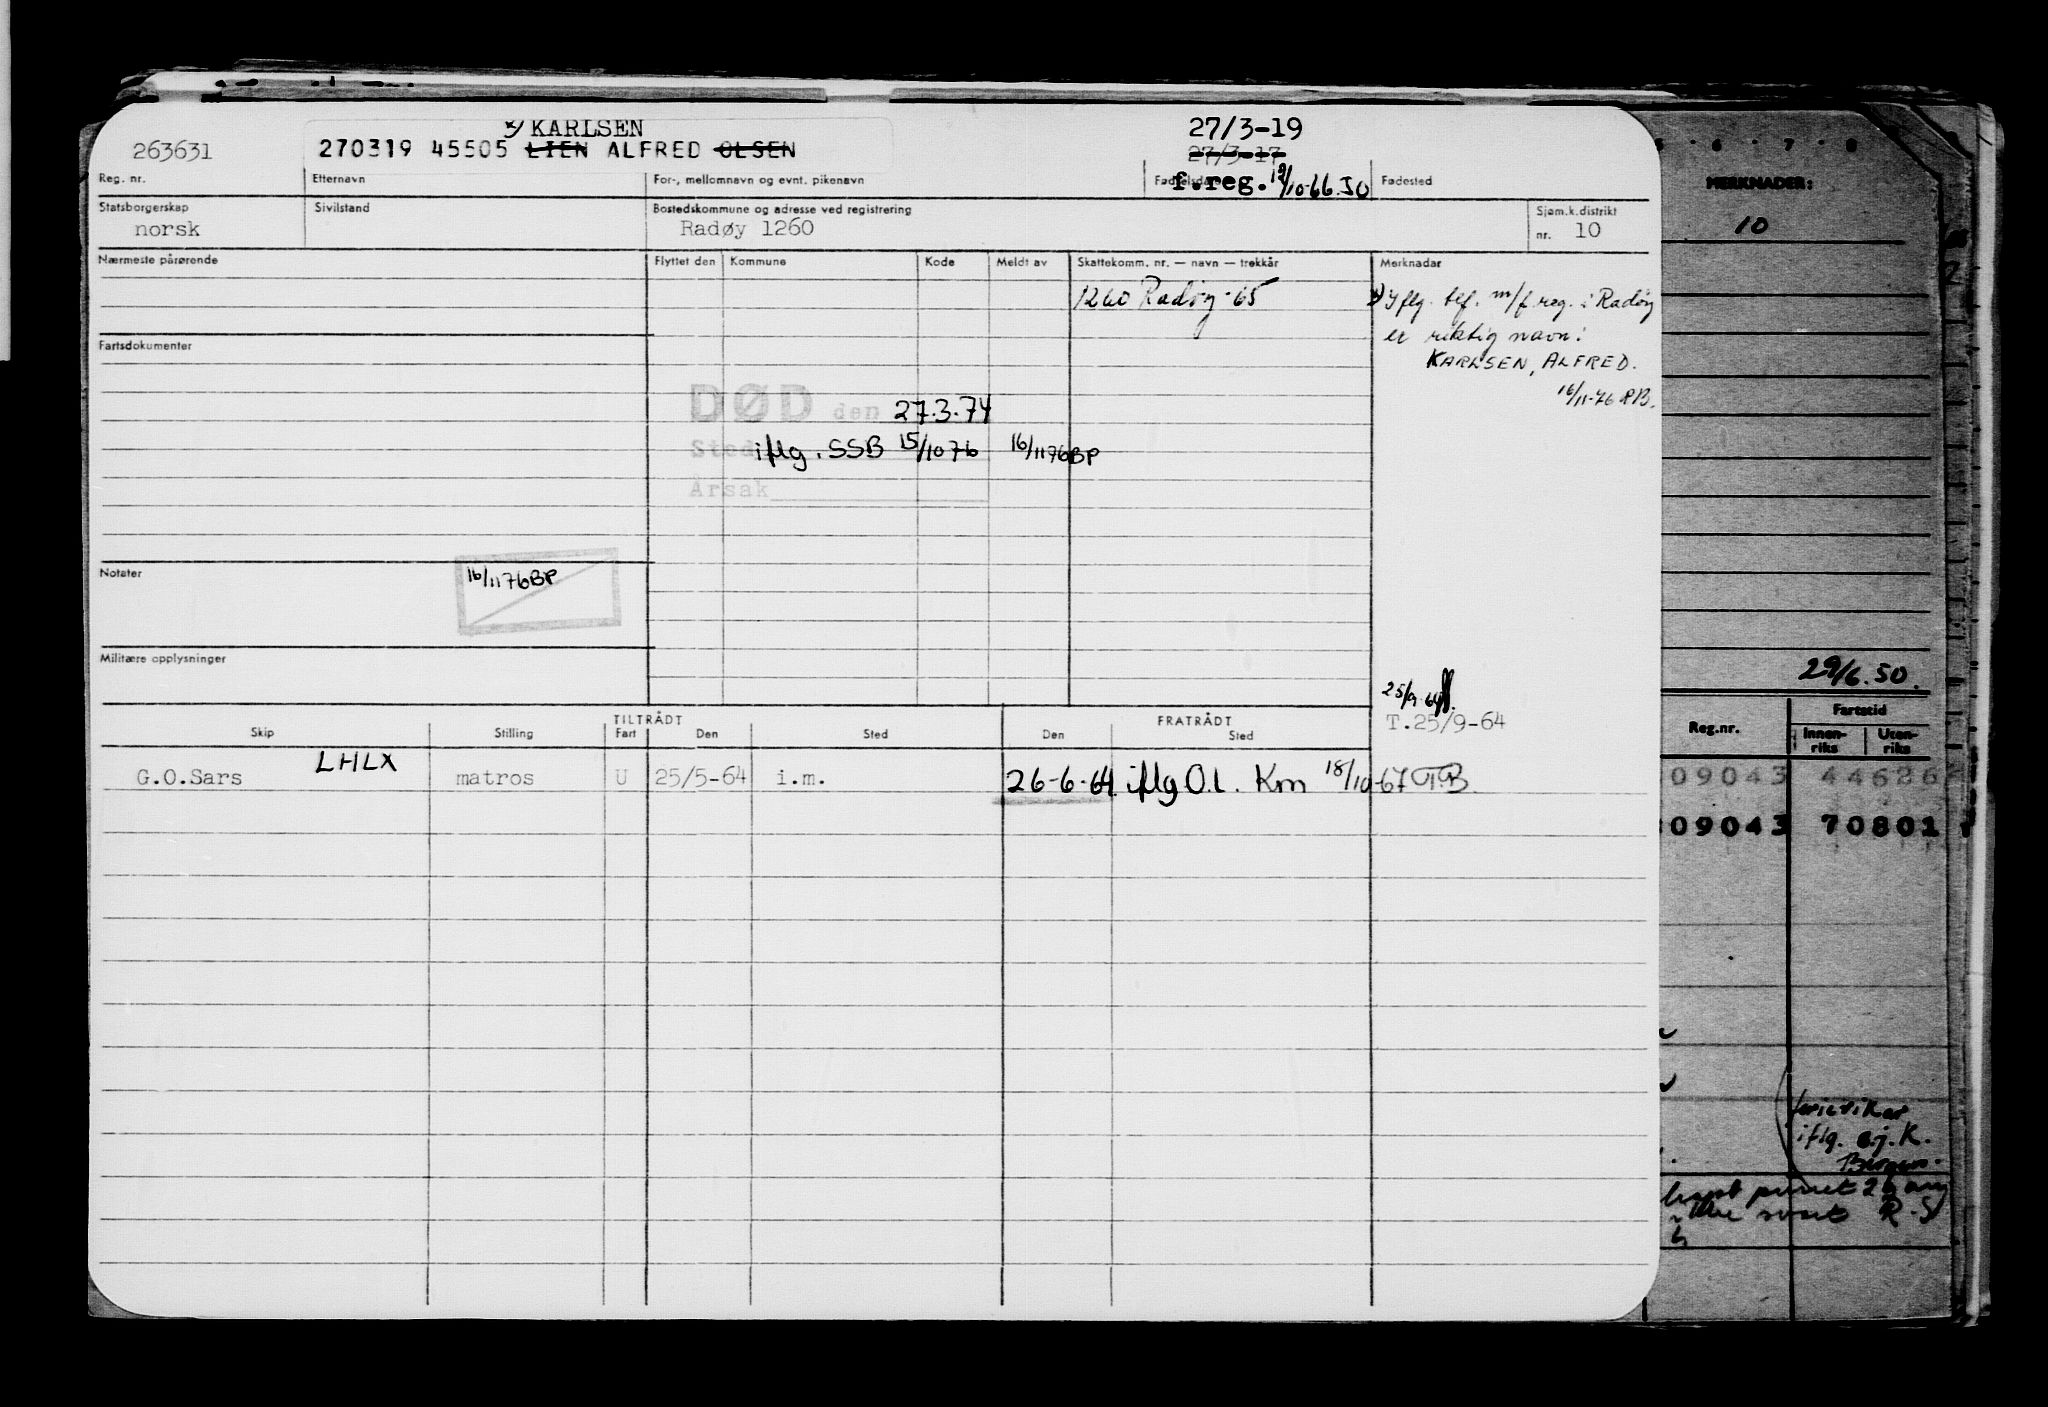 x) KARLSEN
27/3-19
263631
270319 45505 LIEN ALFRED OLSEN
27/3-17
Reg. nr. Etternavn For-, mellomnavn og evnt. pikenavn Fødselsdato Fødested
f.reg. 19/10-66.JO
Statsborgerskap Sivilstand Bostedskommune og adresse ved registrering Sjøm.k.distrikt
norsk Radøy 1260 nr. 10
Nærmeste pårørende Flyttet den Kommune Kode Meldt av Skattekomm. nr. — navn — trekkår Merknader
1260 Radøy-65
x) Iflg. tlf. m/f.reg. i Radøy
er riktig navn:
KARLSEN, ALFRED.
16/11-76 RB.
Fartsdokumenter
DØD den 27.3.74
Sted iflg. SSB 15/10 76 16/11 76 BP
Årsak
Notater
16/11 76 BP
Militære opplysninger
25/9-64
T.25/9-64
TILTRÅDT FRATRÅDT
Skip Stilling Fart Den Sted Den Sted
G.O.Sars LHLX matros U 25/5-64 i.m. 26-6-64 iflg O.L. Km 18/10-67 T.B
5 6 7 8
MERKNADER:
10
29/6.50.
Reg.nr. Fartstid
Innen-
riks
Uten-
riks
09043 44626
09043 70801
ferievikar
iflg. e.j.K.
Bergen.
R.S